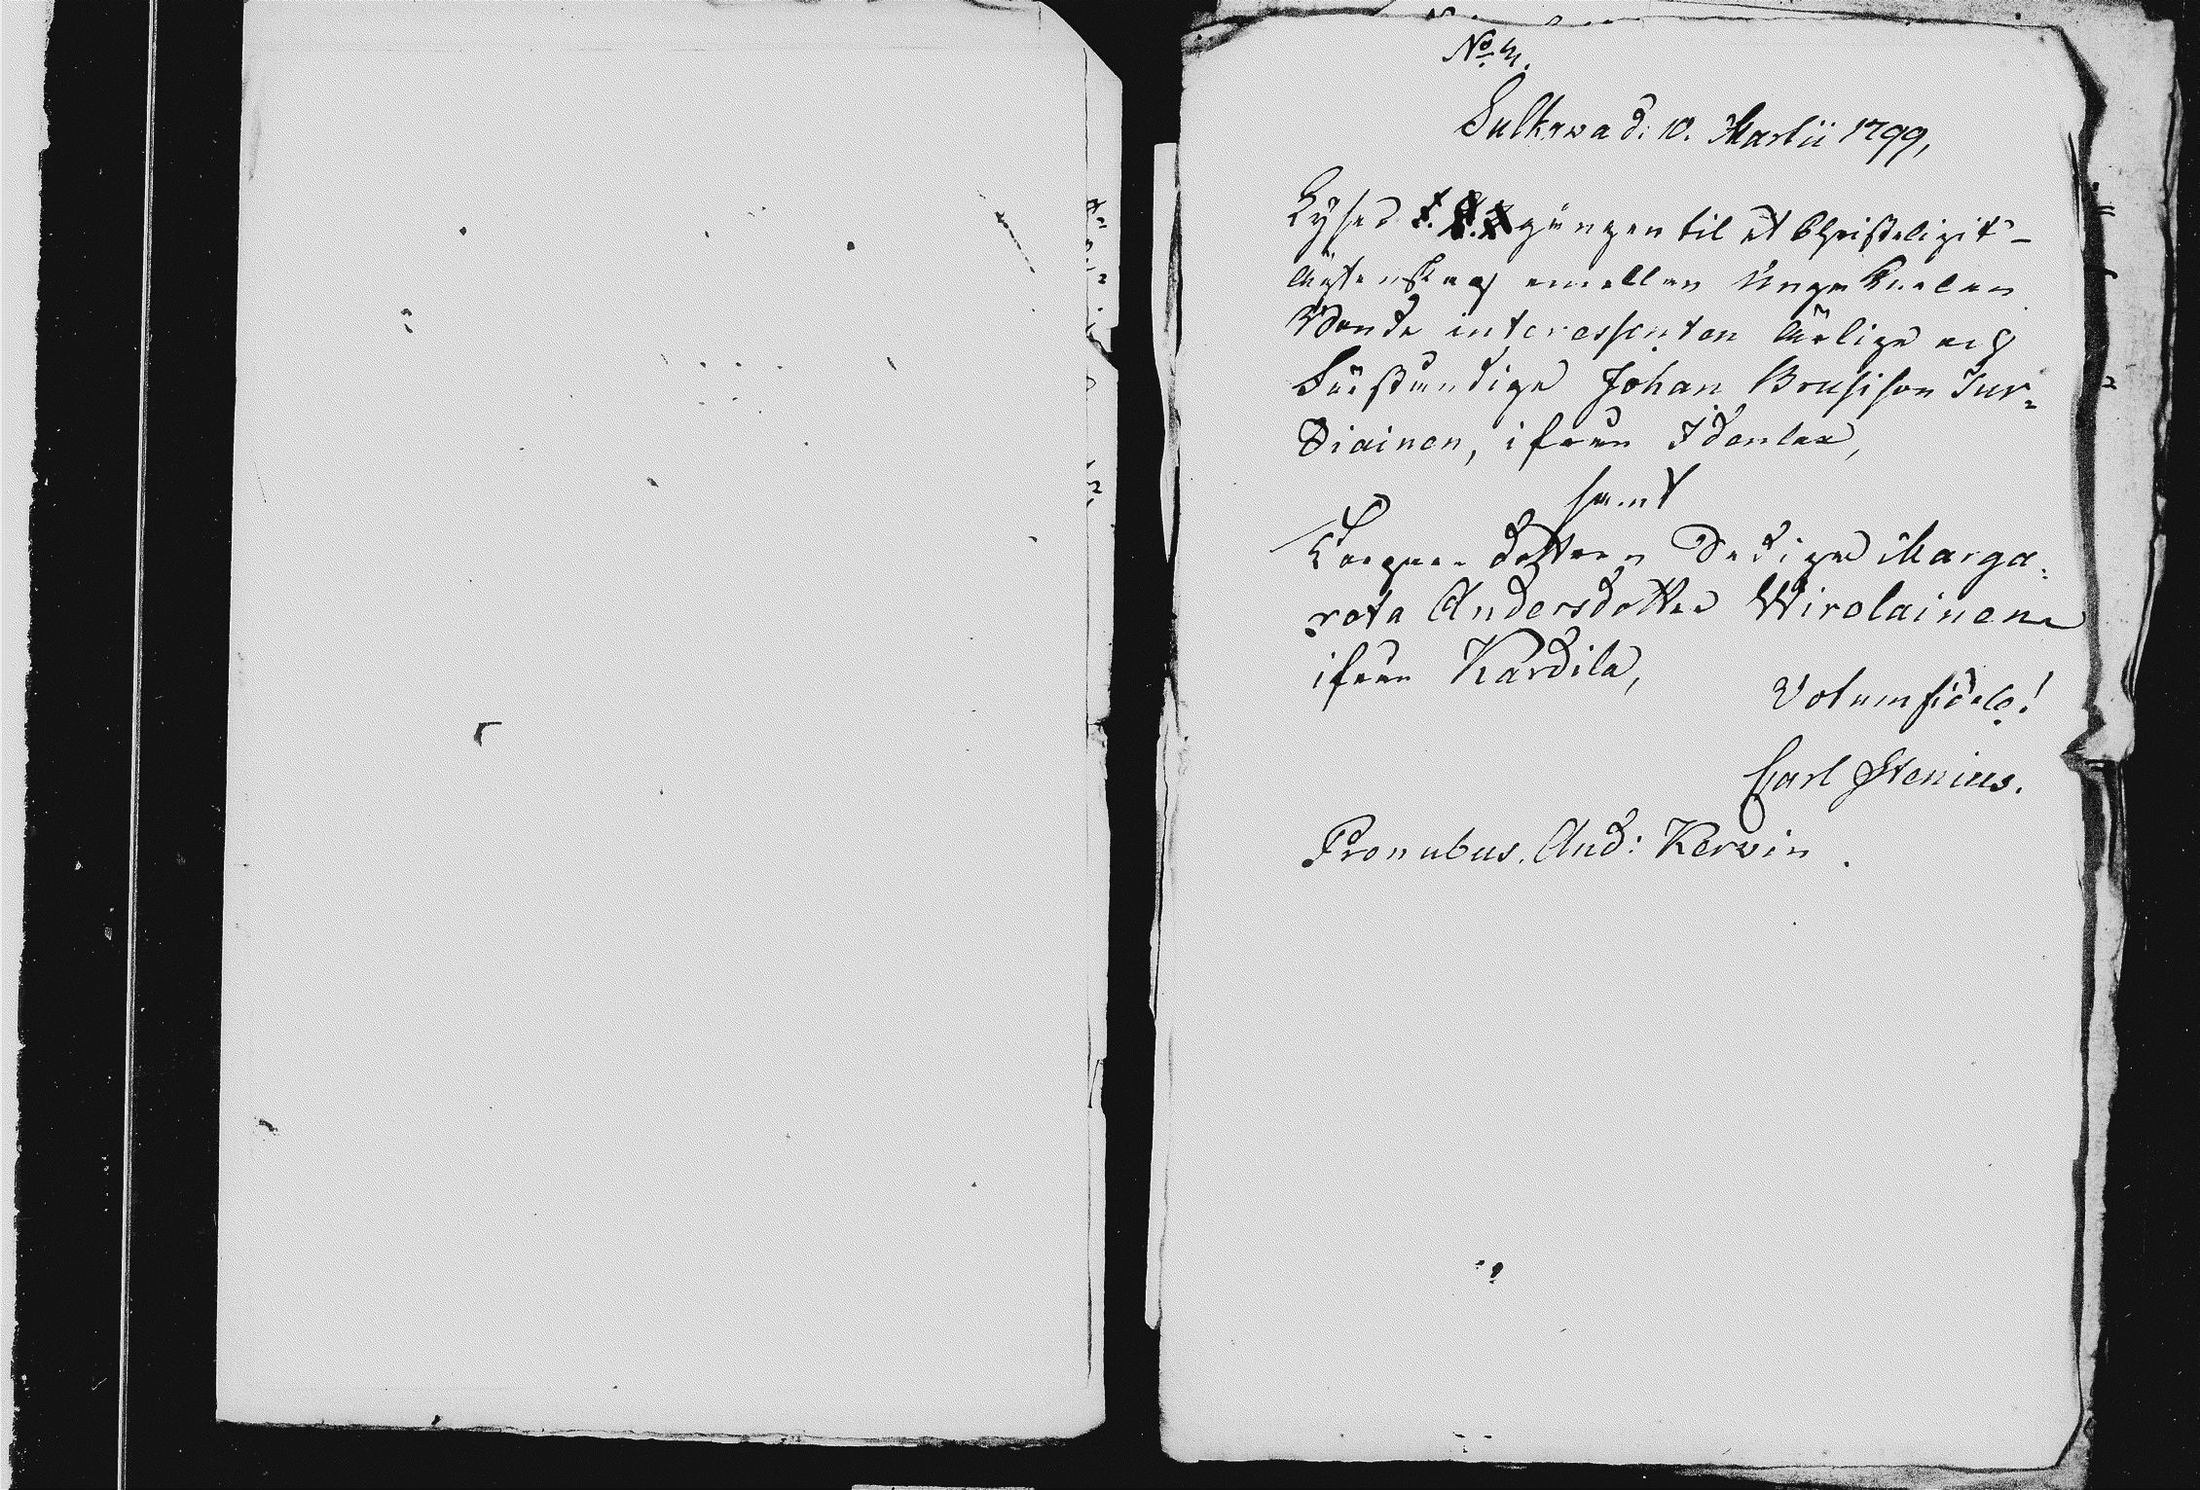 No 4.
Sulkawa d. 10. Martii 1799,
Lyses 1. 2. 3 gången til et Christeligit
ächtenskap emellan Unge Karlen
Bonde interessenten ärlige och
Beständige Johan Brusison Tur=
diainen, ifrån Idenlax,
samt
Torpare dottren Dädige Marga=
reta Andersdotter Wirolainen
ifrån Kardila,
Votum fidele!
Carl Stenius.
Pronubus. And: Kervin.